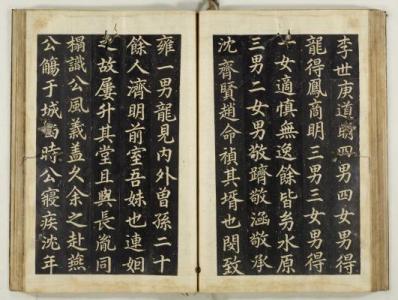 李世庚道四男四女男得
龍得鳳商明三男三女男得
女適慎無逸餘皆幼水原
三男二女男敬躋敬涵敬承
沈齊賢趙命禎其壻也閔致
雍一男龍見內外曾孫二十
餘人濟明前室吾妹也連姻
之故屢升其堂且與長胤同
榻識公風義盖久余之赴燕
公觴于城時公寢疾沈年